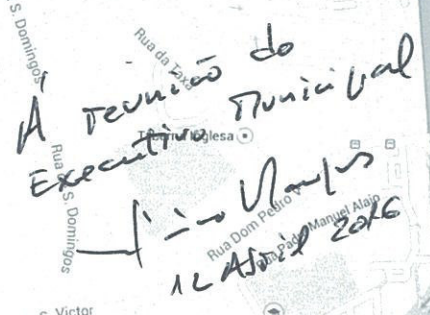 S. Domingos
Rua da Taxa
À reunião do
Executivo Municipal
Taberna Inglesa
Rua S. Domingos
Rua Dom Pedro V
Rua Padre Manuel Alaio
12 Abril 2016
S. Victor